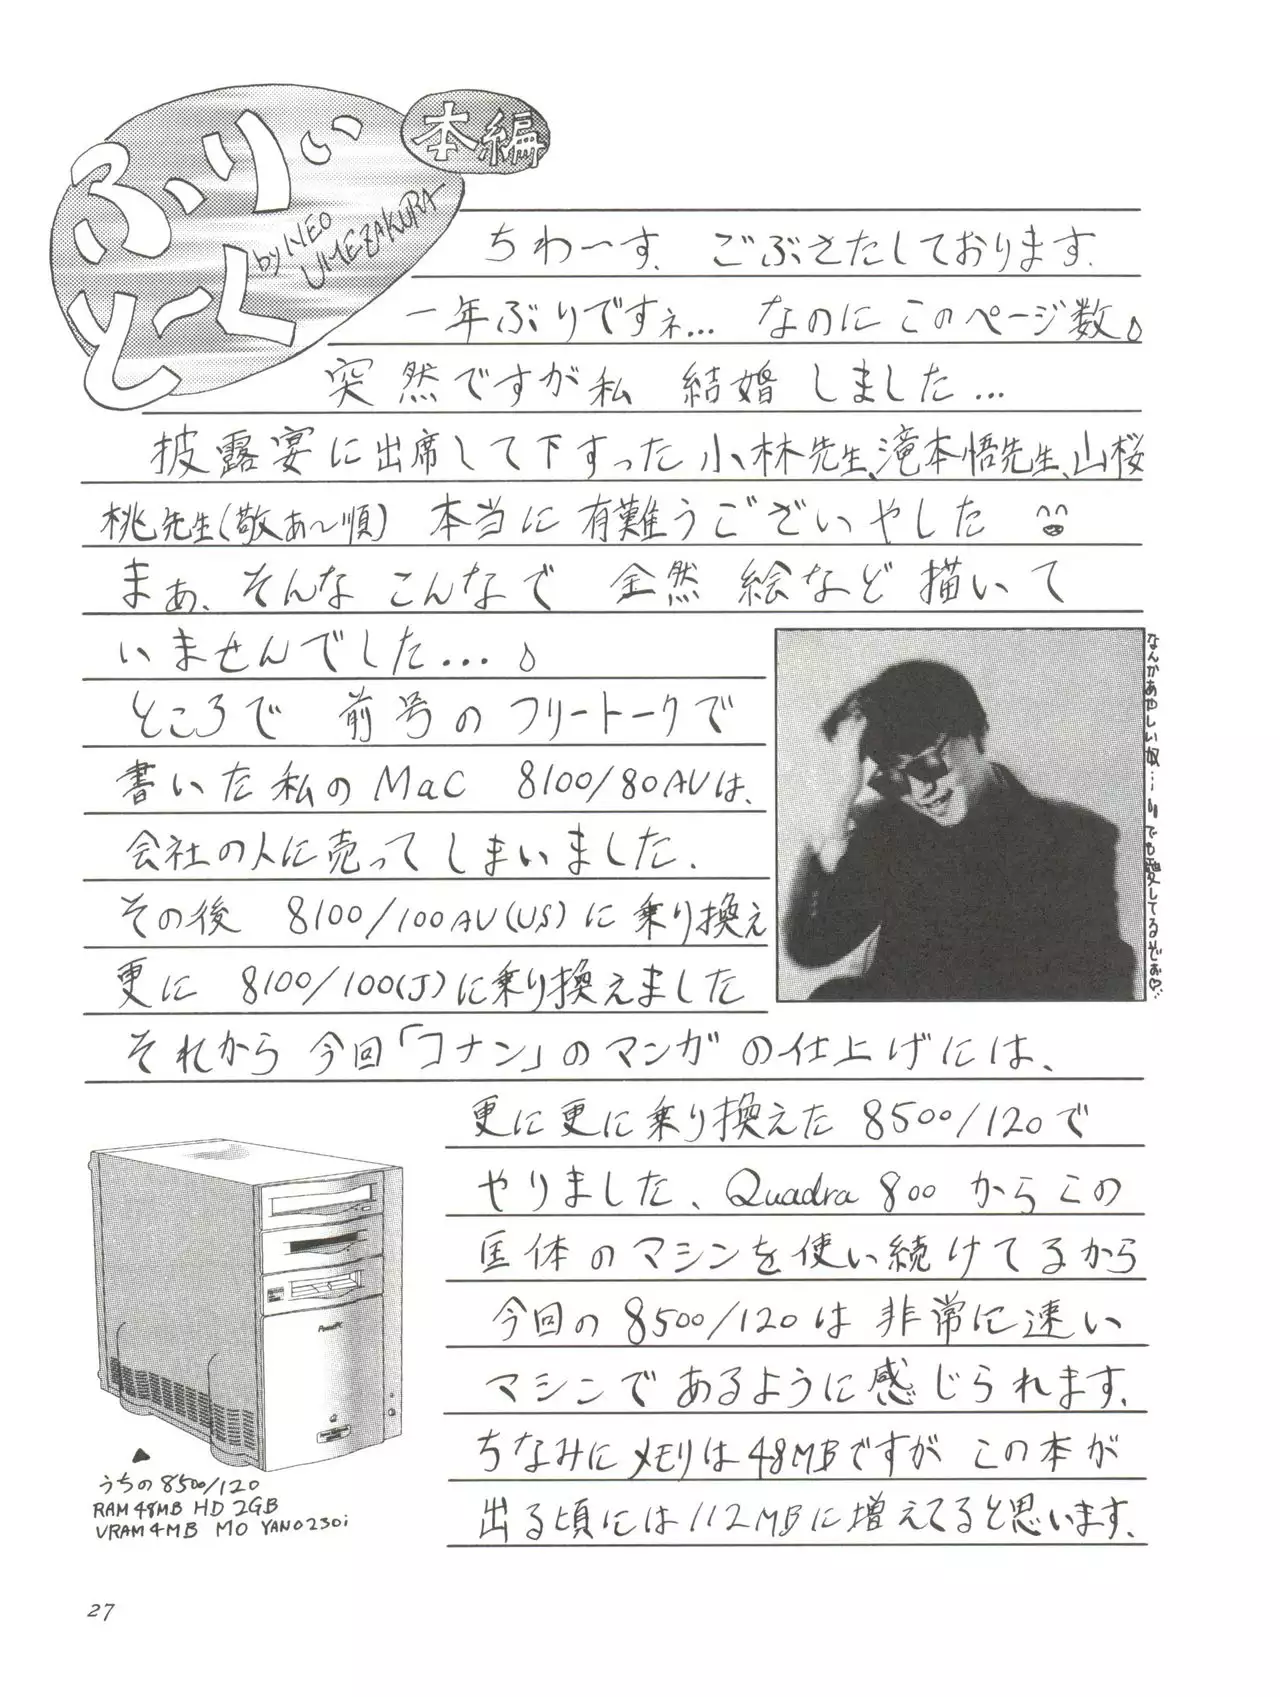 ふりぃ
とーく
by NEO
UMEZAKURA
本編
ちわ〜す、ごぶさたしております、
一年ぶりですネ… なのに このページ数♪
突然ですが私 結婚 しました…
披露宴に出席して下すった小林先生、滝本悟先生、山桜
桃先生(敬あ〜順) 本当に有難うございやした
まぁ、そんな こんなで 全然 絵など 描いて
いませんでした…♪
ところで 前号の フリートークで
書いた私の Mac 8100/80AVは、
会社の人に売って しまいました、
その後 8100/100AV(US)に乗り換え
更に 8100/100(J)に乗り換えました
それから 今回「コナン」のマンガの仕上げには、
更に更に乗り換えた 8500/120で
やりました、Quadra 800 からこの
匡体のマシンを使い続けてるから
今回の 8500/120は 非常に速い
マシンで あるように感じられます、
ちなみに メモリは48MBですが この本が
出る頃には112MBに増えてると思います、
なんかあやしい奴…〃でも愛してるぞぉ♡…
PowerPC
▲
うちの8500/120
RAM 48MB HD 2GB
VRAM 4MB MO YANO230i
27